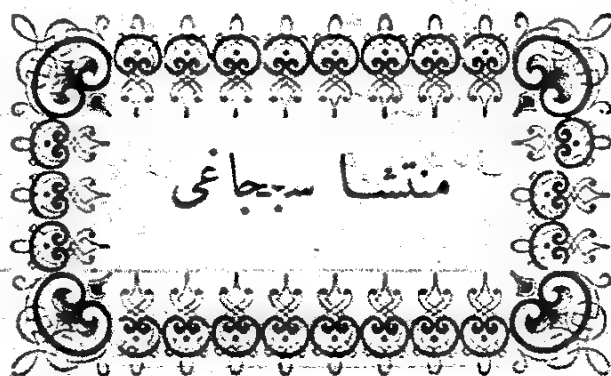 منتشا سنجاغی